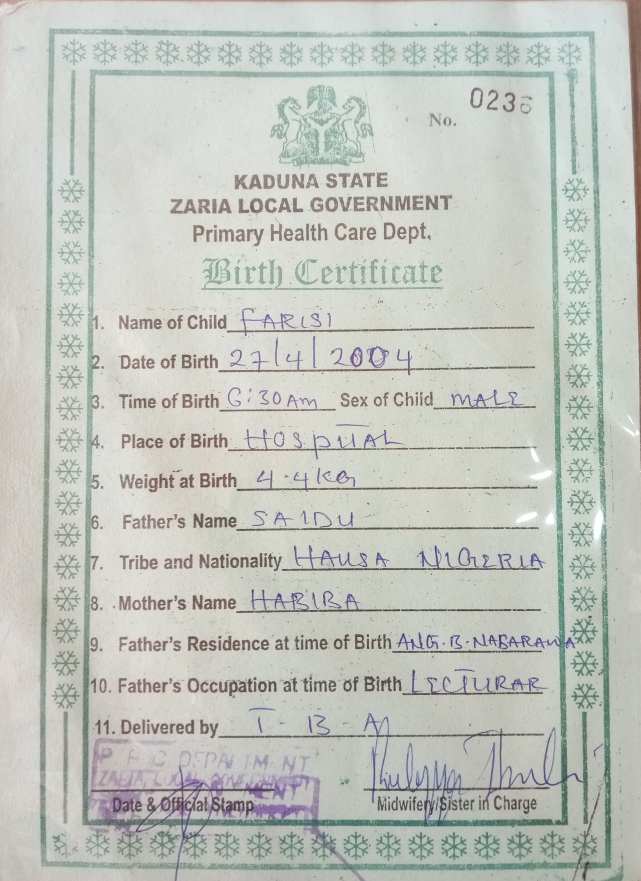 No. 0236
KADUNA STATE
ZARIA LOCAL GOVERNMENT
Primary Health Care Dept.
Birth Certificate
1. Name of Child FARISI
2. Date of Birth 27/4/2004
3. Time of Birth 6:30Am Sex of Child MALE
4. Place of Birth HOSPITAL
5. Weight at Birth 4.4KG
6. Father's Name SAIDU
7. Tribe and Nationality HAUSA NIGERIA
8. Mother's Name HABIBA
9. Father's Residence at time of Birth ANG.B.NABARAWA
10. Father's Occupation at time of Birth LECTURAR
11. Delivered by T-B-A
P H C DEPARTMENT
ZARIA LOCAL GOVERNMENT
Date & Official Stamp
Midwifery/Sister in Charge